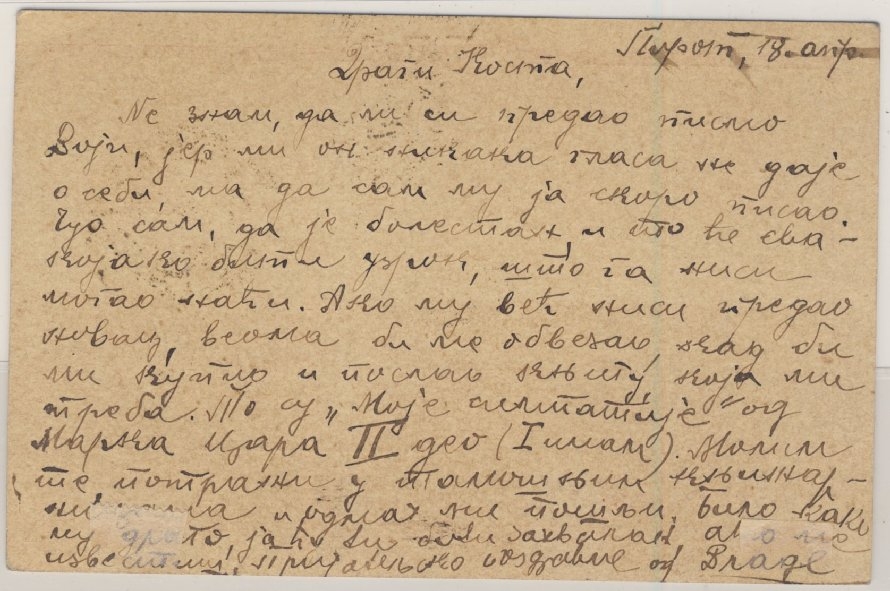 Пирот, 18. апр.
Драги Коста,
Не знам, да ли си предао писмо
Воји, јер ми он никака гласа не даје
о себи ма да сам му ја скоро писао.
Чуо сам, да је болестан, и то ће сва-
којако бити узрок, што га ниси
могао наћи. Ако му већ ниси предао
новац, веома би ме обвезао, кад би
ми купио и послао књигу која ми
треба. То су „Моје симпатије" од
Марка Цара II део (I имам). Молим
те потражи у тамошњим књижар-
и одмах ми пошљи. Било како
му драго, ја ћу ти бити захвалан
пријатељско поздравље од Браге